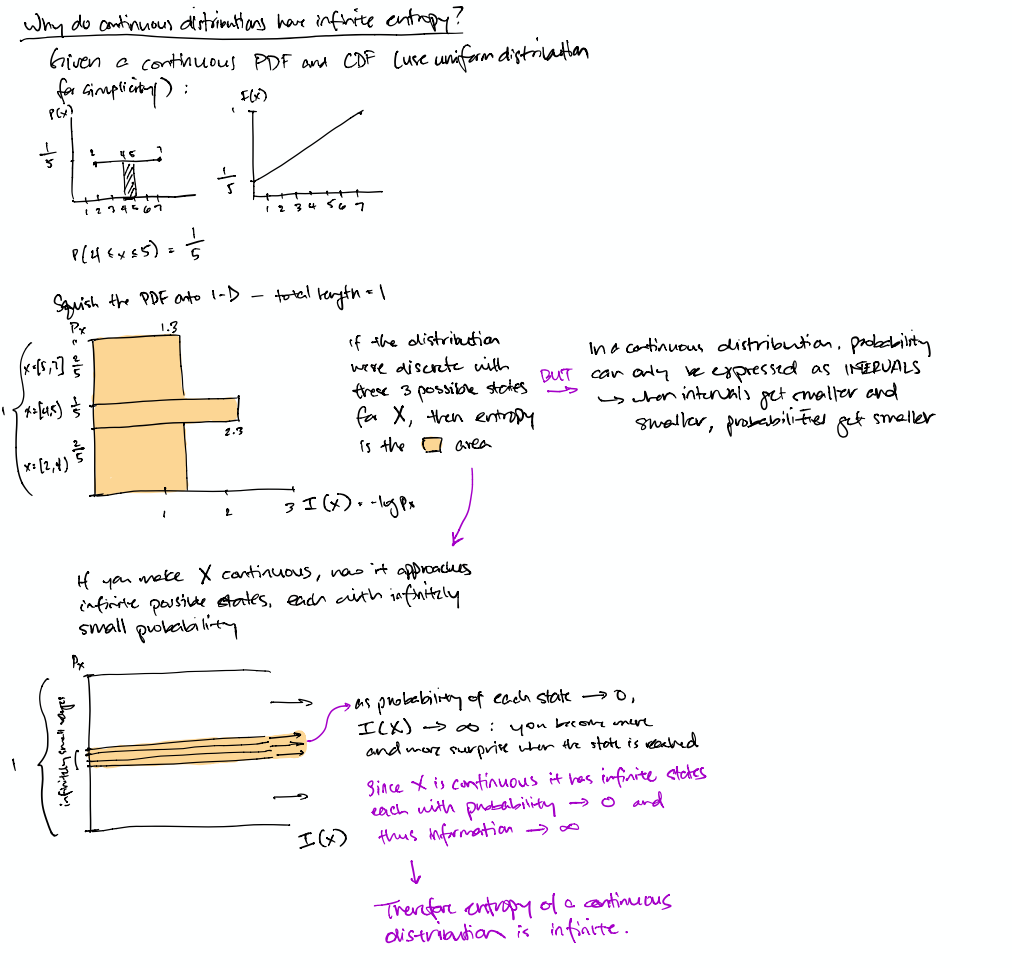 Why do continuous distributions have infinite entropy?
Given a continuous PDF and CDF (use uniform distribution
for simplicity):
P(x)
1/5
2
4 5
7
1 2 3 4 5 6 7
I(x)
1/5
1 2 3 4 5 6 7
P(4 ≤ x ≤ 5) = 1/5
Squish the PDF onto 1-D — total length = 1
Px
1.3
x=[5,7] 2/5
1
x=[4,5) 1/5
2.3
x=[2,4) 2/5
1 2 3
I(x) = -log Px
if the distribution
were discrete with
these 3 possible states
for X, then entropy
is the area
BUT
In a continuous distribution, probability
can only be expressed as INTERVALS
↳ when intervals get smaller and
smaller, probabilities get smaller
If you make X continuous, now it approaches
infinite possible states, each with infinitely
small probability
Px
1
infinitely small ranges
I(x)
as probability of each state → 0,
I(X) → ∞ : you become more
and more surprise when the state is reached
Since X is continuous it has infinite states
each with probability → 0 and
thus information → ∞
↓
Therefore entropy of a continuous
distribution is infinite.